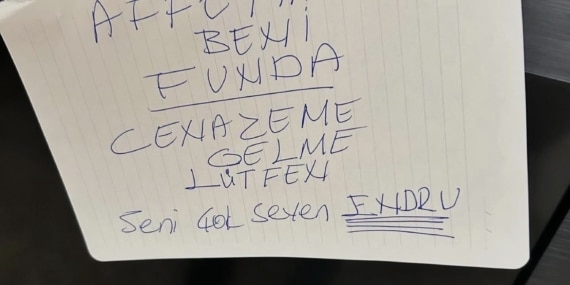 AFFET
BENİ
FUNDA
CENAZEME
GELME
LÜTFEN
Seni Çok Seven